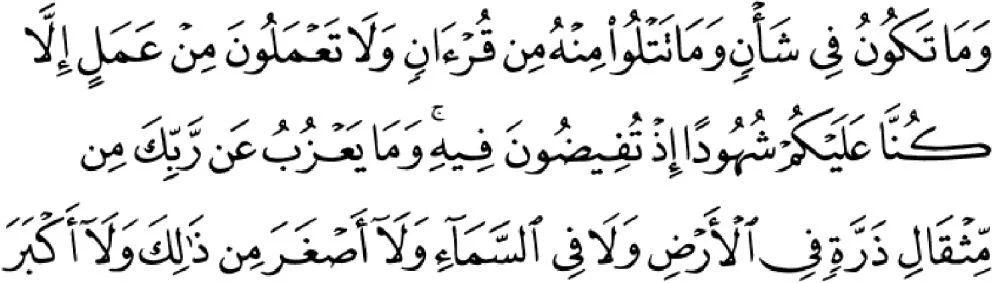 وَمَا تَكُونُ فِي شَأْنٍ وَمَا تَتْلُوا۟ مِنْهُ مِن قُرْءَانٍ وَلَا تَعْمَلُونَ مِنْ عَمَلٍ إِلَّا
كُنَّا عَلَيْكُمْ شُهُودًا إِذْ تُفِيضُونَ فِيهِ ۚ وَمَا يَعْزُبُ عَن رَّبِّكَ مِن
مِّثْقَالِ ذَرَّةٍ فِي ٱلْأَرْضِ وَلَا فِي ٱلسَّمَآءِ وَلَآ أَصْغَرَ مِن ذَٰلِكَ وَلَآ أَكْبَرَ